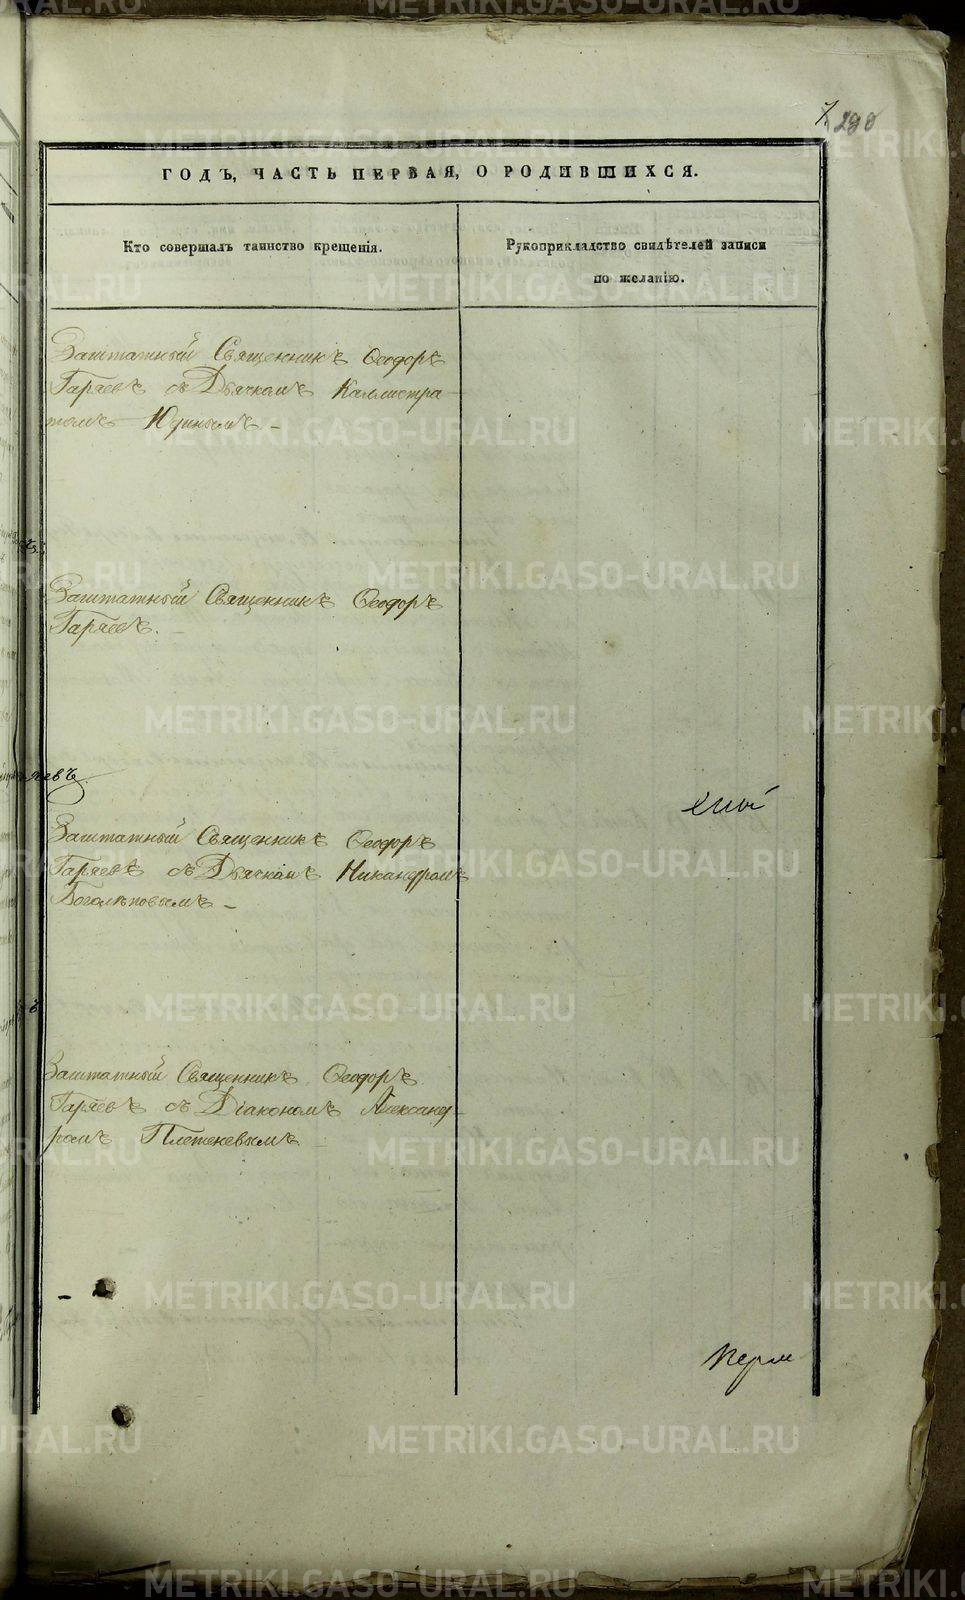 290
ГОДЪ, ЧАСТЬ ПЕРВАЯ, О РОДИВШИХСЯ.
Кто совершалъ таинство крещенія.
Рукоприкладство свидѣтелей записи
по желанію.
Заштатный Священникъ Ѳеодоръ
Гаряевъ съ Дьячкомъ Каллистра-
томъ Юринымъ. –
Заштатный Священникъ Ѳеодоръ
Гаряевъ. –
Заштатный Священникъ Ѳеодоръ
Гаряевъ съ Дьячкомъ Никандромъ
Боголѣповымъ –
Заштатный Священникъ Ѳеодоръ
Гаряевъ съ Діакономъ Александ-
ромъ Плетеневымъ –
METRIKI.GASO-URAL.RU